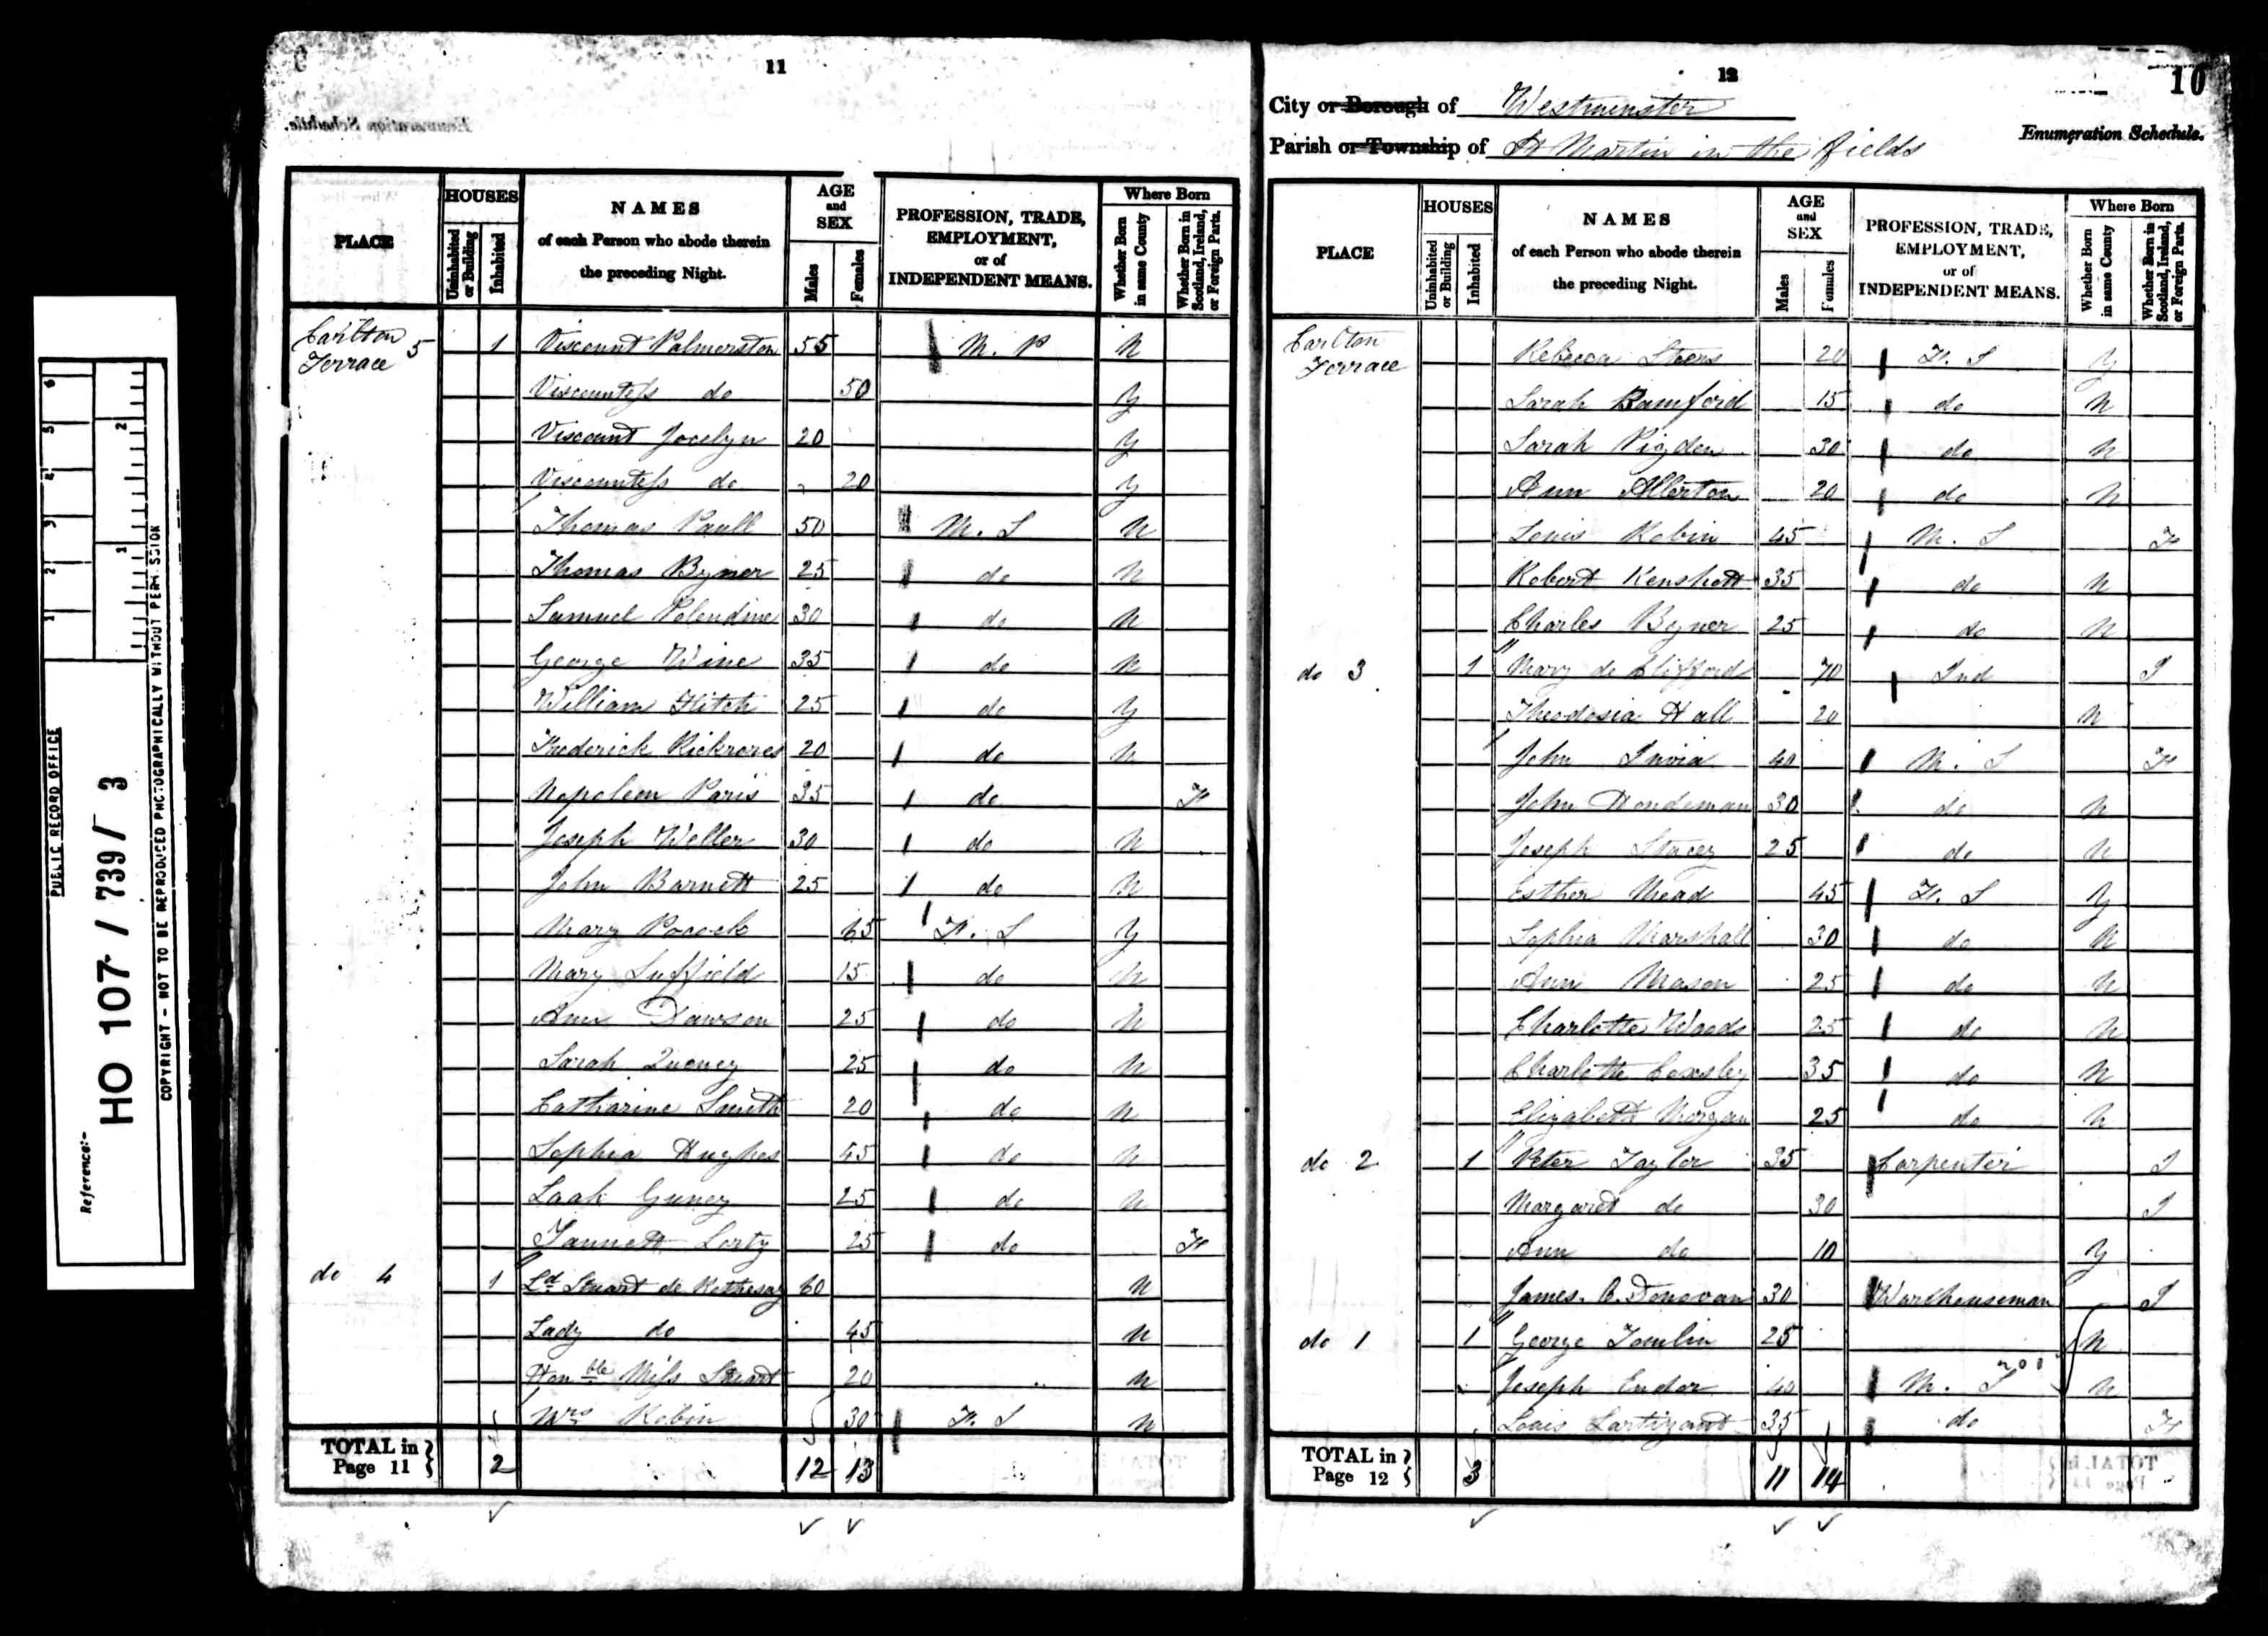 PUBLIC RECORD OFFICE
Reference:-
HO 107 / 739 / 3
COPYRIGHT - NOT TO BE REPRODUCED PHOTOGRAPHICALLY WITHOUT PERMISSION
11
PLACE
HOUSES
Uninhabited or Building
Inhabited
NAMES
of each Person who abode therein
the preceding Night.
AGE and SEX
Males
Females
PROFESSION, TRADE,
EMPLOYMENT,
or of
INDEPENDENT MEANS.
Where Born
Whether Born in same County
Whether Born in Scotland, Ireland, or Foreign Parts.
Carlton Terrace 5 1 Viscount Palmerston 55 M. P N
Viscountess do 50 Y
Viscount Jocelyn 20 Y
Viscountess do 20 Y
Thomas Paull 50 M. S N
Thomas Bymer 25 do N
Samuel Polendine 30 do N
George Wine 35 do N
William Fitch 25 do Y
Frederick 20 do N
Napoleon Paris 35 do F
Joseph Weller 30 do N
John Barnett 25 do N
Mary Pocock 65 F. S Y
Mary Suffield 15 do N
Ann Dawson 25 do N
Sarah 25 do N
Catharine Smith 20 do N
Sophia Hughes 45 do N
Leah Guney 25 do N
Jannett 25 do F
do 4 1 Ld. Stuart de Rothesay 60 N
Lady do 45 N
Honble Miss Stuart 20 N
Mrs Robin 30 F. S N
TOTAL in Page 11 2 12 13
12
10
City or Borough of Westminster
Parish or Township of St Martin in the fields
Enumeration Schedule.
PLACE
HOUSES
Uninhabited or Building
Inhabited
NAMES
of each Person who abode therein
the preceding Night.
AGE and SEX
Males
Females
PROFESSION, TRADE,
EMPLOYMENT,
or of
INDEPENDENT MEANS.
Where Born
Whether Born in same County
Whether Born in Scotland, Ireland, or Foreign Parts.
Carlton Terrace Rebecca Steers 20 F. S Y
Sarah Bamford 15 do N
Sarah Pigden 30 do N
Ann Allerton 20 do N
Louis Robin 45 M. S F
Robert Kenshott 35 do N
Charles Bymer 25 do N
do 3 1 Mary de Clifford 70 Ind I
Theodosia Hall 20 N
John 40 M. S F
John 30 do N
Joseph Stacey 25 do N
Esther Mead 45 F. S Y
Sophia Marshall 30 do N
Ann Mason 25 do N
Charlotte Woods 25 do N
Charlotte Coxsley 35 do N
Elizabeth Morgan 25 do N
do 2 1 Peter Taylor 35 Carpenter I
Margaret do 30 I
Ann do 10 Y
James Donovan 30 Warehouseman I
do 1 1 George Tomlin 25 N
Joseph Endor 40 M. S N
Louis 35 do F
TOTAL in Page 12 3 11 14